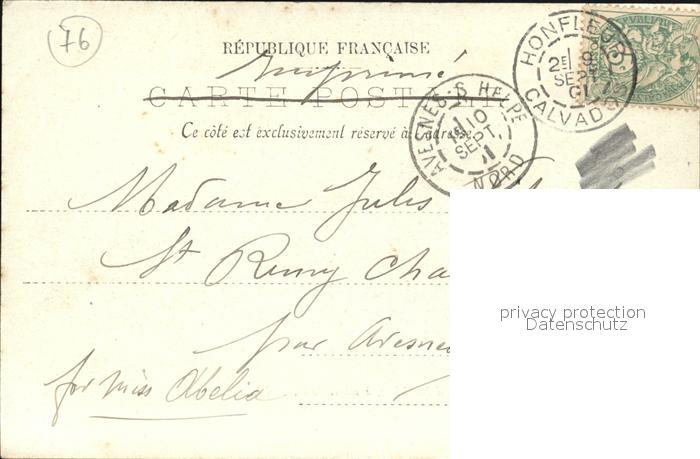 76
RÉPUBLIQUE FRANÇAISE
Imprimé
CARTE POSTALE
Ce côté est exclusivement réservé à l'adresse.
HONFLEUR
2E 9
SEPT
01
CALVADOS
AVESNES-S-HELPE
10
SEPT.
01
NORD
RÉPUBLIQUE
Madame Jules
St Remy Cha
par Avesne
for Miss Abelia
privacy protection
Datenschutz